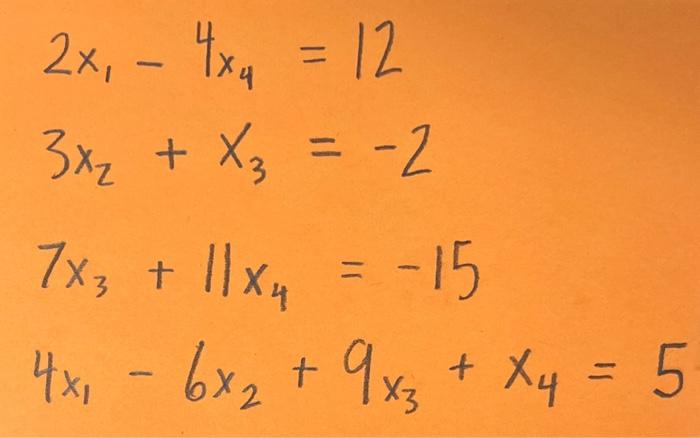 2x₁ - 4x₄ = 12
3x₂ + x₃ = -2
7x₃ + 11x₄ = -15
4x₁ - 6x₂ + 9x₃ + x₄ = 5